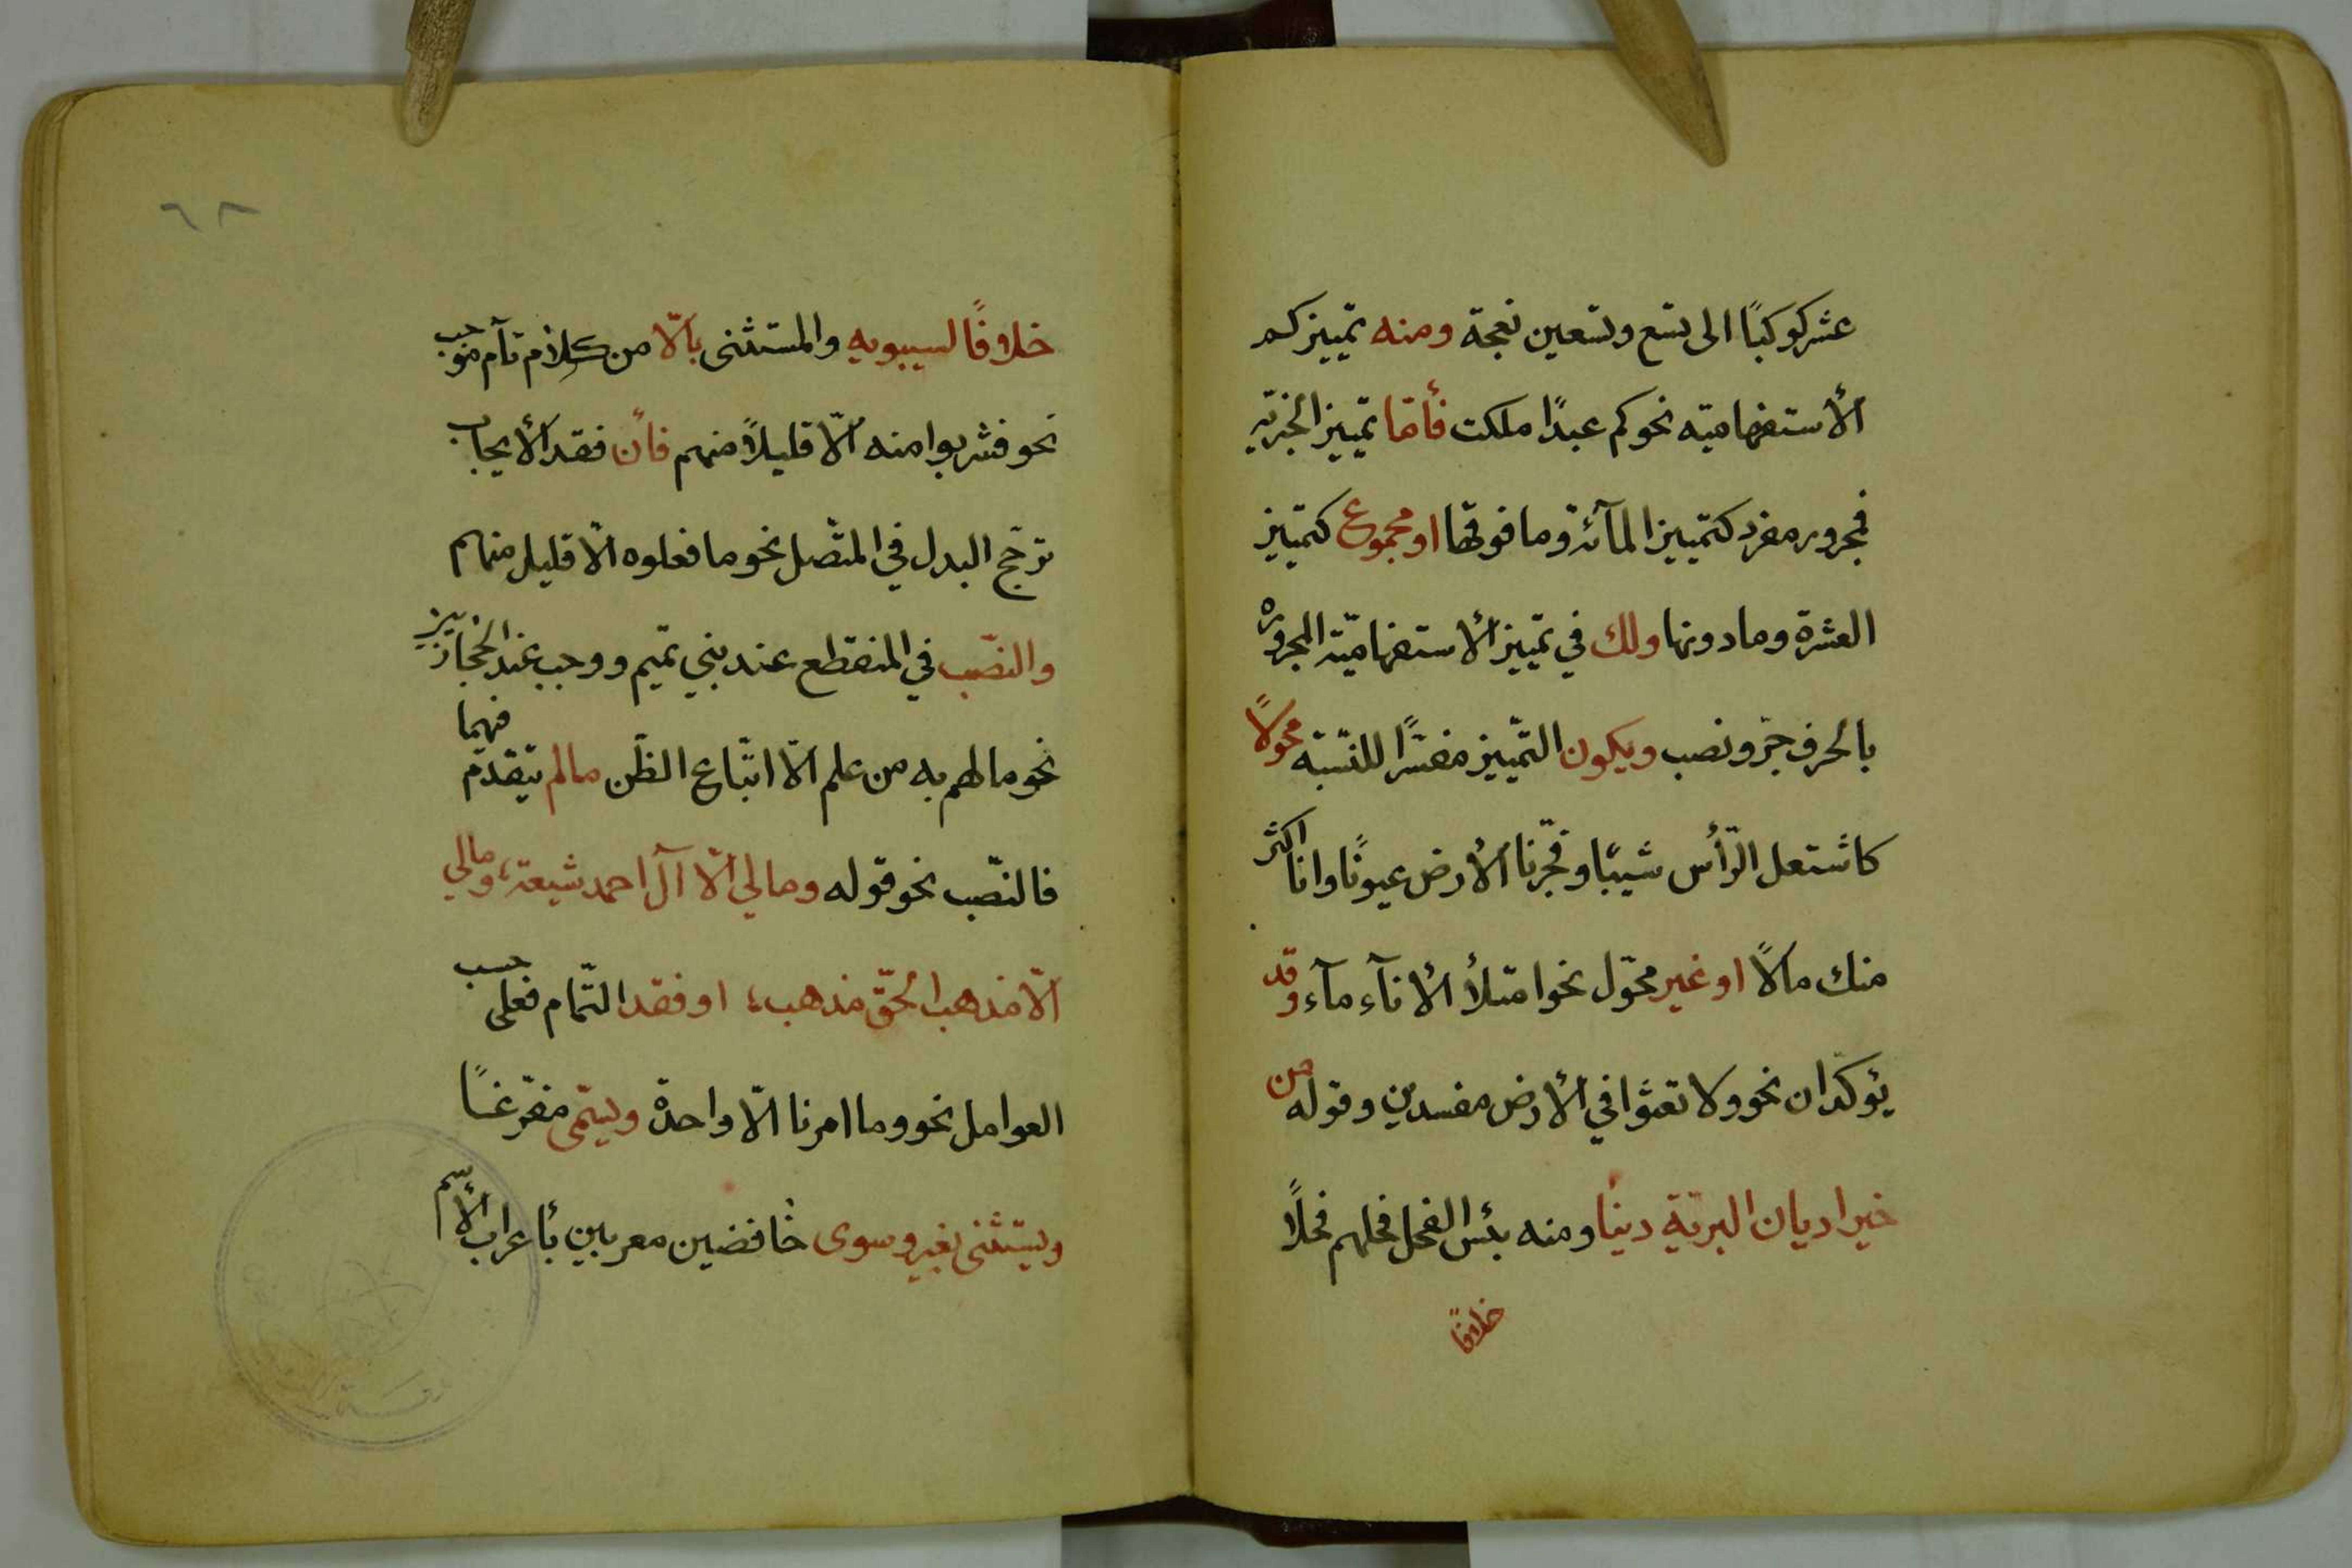 عشر كوكبًا الى تسع وتسعين نعجة ومنه تمييز كم
الأستفهاميّه نحو كم عبدًا ملكت فأمّا تمييز الخبريّه
فمجرور مفرد كتمييز المآئة وما فوقها او مجموع كتمييز
العشرة وما دونها ولك في تمييز الأستفهاميّة المجروره
بالحرف جرّ ونصب ويكون التّمييز مفسّرًا للنّسبة محولًا
كاشتعل الرّأس شيبًا وفجّرنا الأرض عيونًا وانا اكثر
منك مالًا او غير محوّل نحو امتلأ الأنآء مآء وقد
يؤكّدان نحو ولا تعثوا في الأرض مفسدين وقوله من
خير اديان البريّة دينًا ومنه بئس الفحل فحلهم فحلًا
خلافًا
٦٨
خلافًا لسيبويه والمستثنى بألّا من كلام تآم موجب
نحو فشربوا منه ألّا قليلاً منهم فأن فقد الأيجاب
ترجّح البدل في المتّصل نحو ما فعلوه الّا قليل منهم
والنصّب في المنقطع عند بني تميم ووجب عند الحجازيين
نحو ما لهم به من علم الّا اتّباع الظّن مالم يتقدّم فيهما
فالنصّب نحو قوله ومالي ألّا آل احمد شيعة، ومالي
الّا مذهب الحقّ مذهب، او فقد التّمام فعلى حسب
العوامل نحو وما امرنا الّا واحدة ويسمّى مفرّغًا
ويستثنى بغير وسوى خافضين معربين بأعراب الأسم